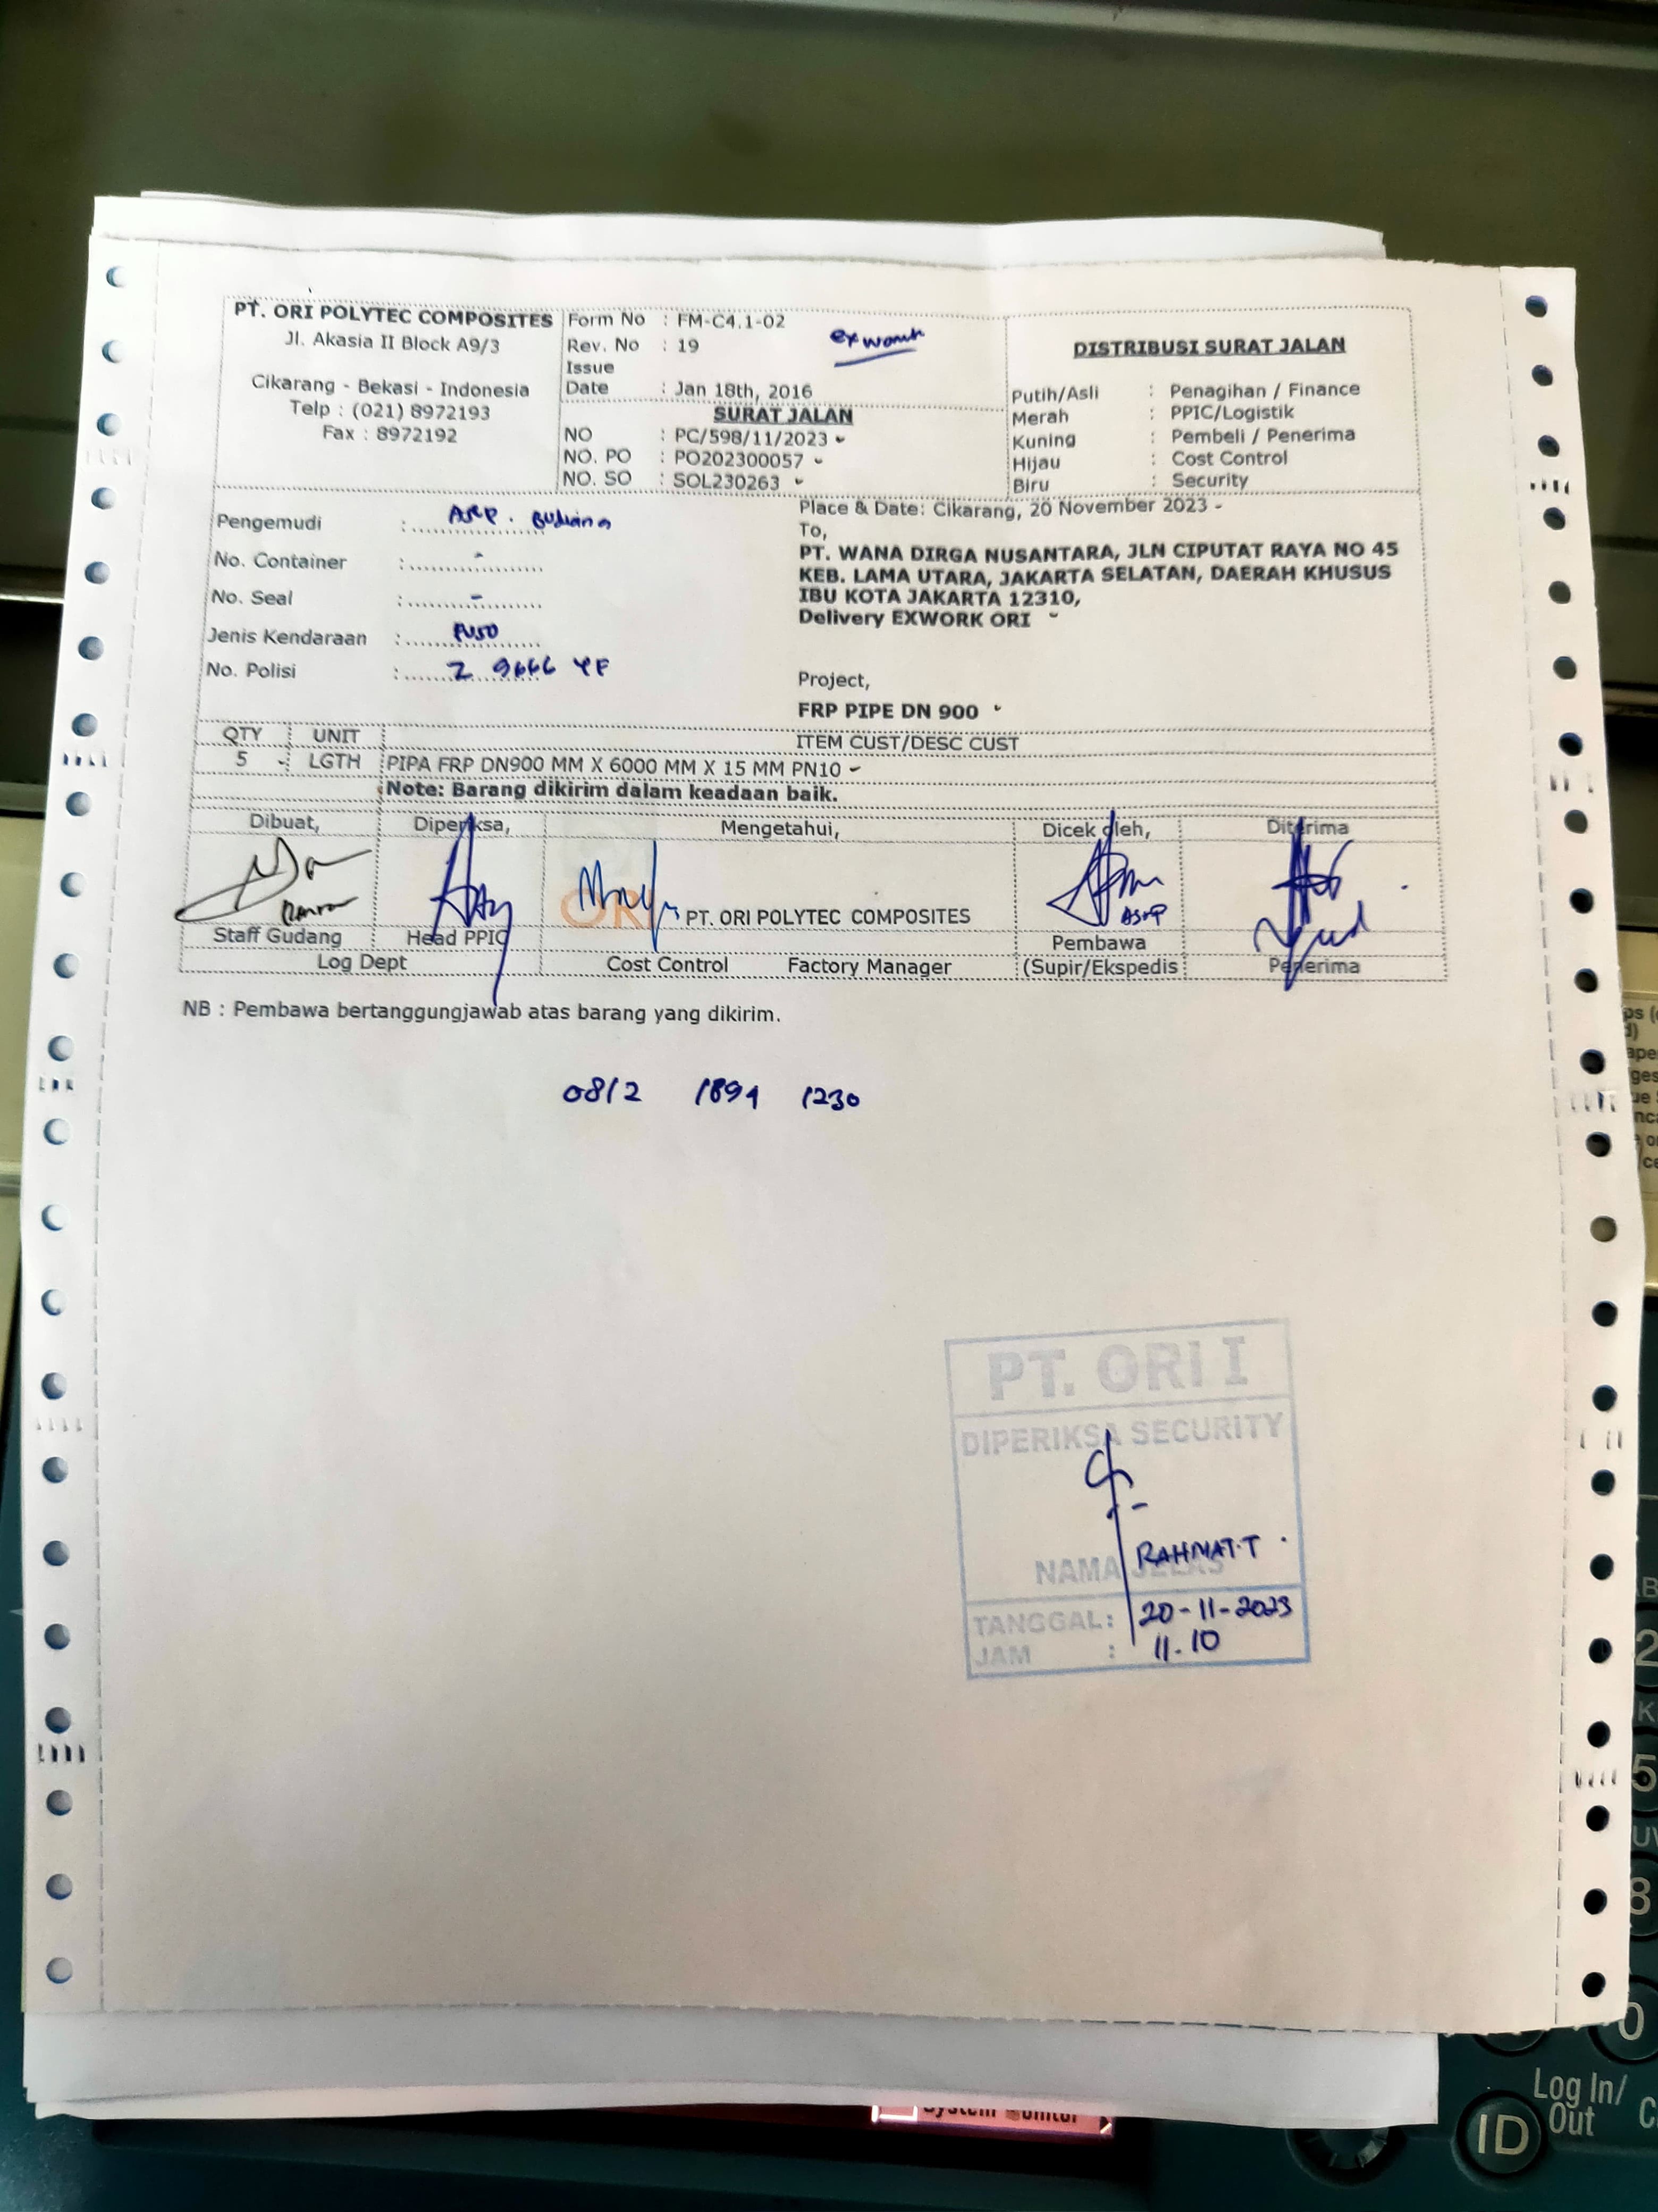 PT. ORI POLYTEC COMPOSITES
Jl. Akasia II Block A9/3
Cikarang - Bekasi - Indonesia
Telp : (021) 8972193
Fax : 8972192
Form No : FM-C4.1-02
Rev. No : 19
Issue
Date : Jan 18th, 2016
exwork
SURAT JALAN
NO : PC/598/11/2023
NO. PO : PO202300057
NO. SO : SOL230263
DISTRIBUSI SURAT JALAN
Putih/Asli : Penagihan / Finance
Merah : PPIC/Logistik
Kuning : Pembeli / Penerima
Hijau : Cost Control
Biru : Security
Pengemudi :
No. Container : -
No. Seal : -
Jenis Kendaraan : FUSO
No. Polisi : Z 9666 YF
Place & Date: Cikarang, 20 November 2023
To,
PT. WANA DIRGA NUSANTARA, JLN CIPUTAT RAYA NO 45
KEB. LAMA UTARA, JAKARTA SELATAN, DAERAH KHUSUS
IBU KOTA JAKARTA 12310,
Delivery EXWORK ORI
Project,
FRP PIPE DN 900
QTY UNIT ITEM CUST/DESC CUST
5 LGTH PIPA FRP DN900 MM X 6000 MM X 15 MM PN10
Note: Barang dikirim dalam keadaan baik.
Dibuat, Diperiksa, Mengetahui, Dicek oleh, Diterima
ORI PT. ORI POLYTEC COMPOSITES
Staff Gudang Head PPIC Pembawa
Log Dept Cost Control Factory Manager (Supir/Ekspedis Penerima
NB : Pembawa bertanggungjawab atas barang yang dikirim.
0812 1894 1230
PT. ORI I
DIPERIKSA SECURITY
RAHMAT.T
NAMA JELAS
TANGGAL: 20-11-2023
JAM : 11.10
System Monitor
Log In/
Out
ID
2
5
8
0